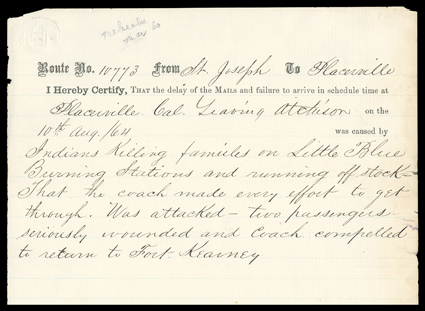 Route No. 10773 From St. Joseph To Placerville
I Hereby Certify, That the delay of the Mails and failure to arrive in schedule time at
Placerville Cal. Leaving Atchison on the
10th Aug. /64 was caused by
Indians Killing families on Little Blue
Burning Stations and running off stock-
That the coach made every effort to get
through. Was attacked - two passengers
seriously wounded and Coach compelled
to return to Fort Kearney